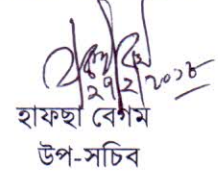 ২৭/২/২০১৮
হাফছা বেগম
উপ-সচিব